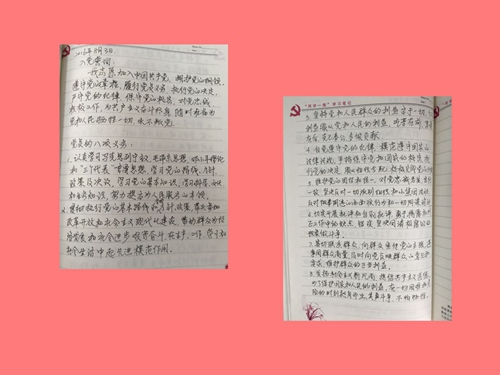 2016年3月3日
入党誓词
我志愿加入中国共产党，拥护党的纲领，
遵守党的章程，履行党员义务，执行党的决定，
严守党的纪律，保守党的秘密，对党忠诚，
积极工作，为共产主义奋斗终身，随时准备为
党和人民牺牲一切，永不叛党。
党员的八项义务：
1、认真学习马克思列宁主义、毛泽东思想、邓小平理论
和“三个代表”重要思想，学习党的路线、方针、
政策及决议，学习党的基本知识，学习科学、文化
和业务知识，努力提高为人民服务的本领。
2、贯彻执行党的基本路线和方针、政策，带头参加
改革开放和社会主义现代化建设，带动群众为经
济发展和社会进步艰苦奋斗，在生产、工作、学习和
社会生活中起先锋模范作用。
“两学一做”学习笔记
3、坚持党和人民群众的利益高于一切，
利益服从党和人民的利益，吃苦在前，享
克己奉公，多做贡献。
4、自觉遵守党的纪律，模范遵守国家的
法律法规，严格保守党和国家的秘密，执
行党的决定，服从组织分配，积极完成党的
5、维护党的团结和统一，对党忠诚老实，言行
一致，坚决反对一切派别组织和小集团活动，
反对阳奉阴违的两面派行为和一切阴谋诡计
6、切实开展批评和自我批评，勇于揭露和纠
正工作中的缺点、错误，坚决同消极腐败
现象作斗争。
7、密切联系群众，向群众宣传党的主张，遇
事同群众商量，及时向党反映群众的意见和
要求，维护群众的正当利益。
8、发扬社会主义新风尚，提倡共产主义道德，
为了保护国家和人民的利益，在一切困难和危
险的时刻挺身而出，英勇斗争，不怕牺牲。